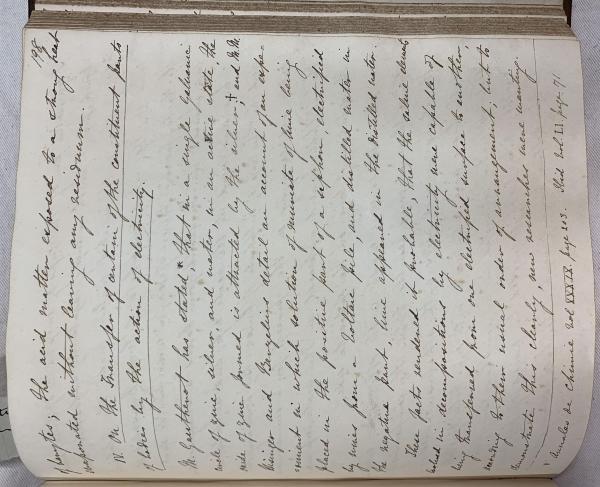 of pewter; the acid matter exposed to a strong heat
evaporated without leaving any residuum.
IV. On the Transfer of certain of the constituent parts
of bodies by the action of electricity.
M. Gautherot has stated,* that in a single Galvanic
circle of zinc, silver, and water, in an active state, the
oxide of zinc formed is attracted by the silver;† and M.M.
Hisinger and Berzelius detail an account of an expe-
riment in which solution of muriate of lime being
placed in the positive part of a siphon, electrified
by wires from a Voltaic pile, and distilled water in
the negative part, lime appeared in the distilled water.
These facts rendered it probable, that the saline elements
evolved in decompositions by electricity were capable of
being transferred from one electrified surface to another,
according to their usual order of arrangement; but to
demonstrate this clearly, new researches were wanting.
* Annales de Chimie Vol XXXIX page 203. Ibid Vol. LI. page 71